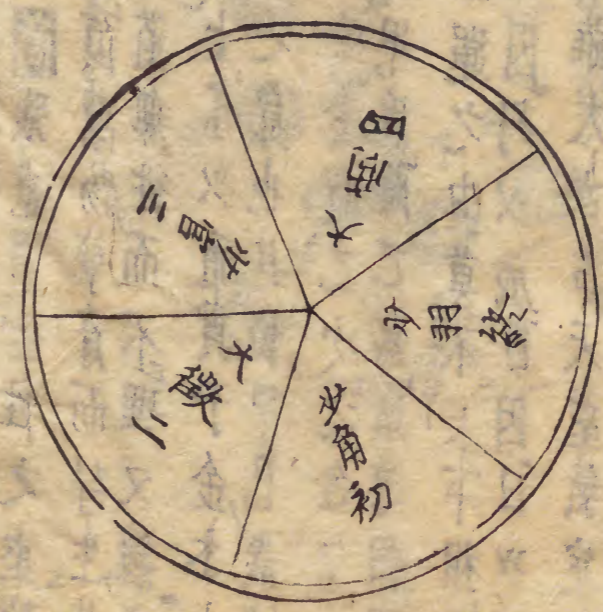 少角初
大徵二
少宮三
大商四
少羽終